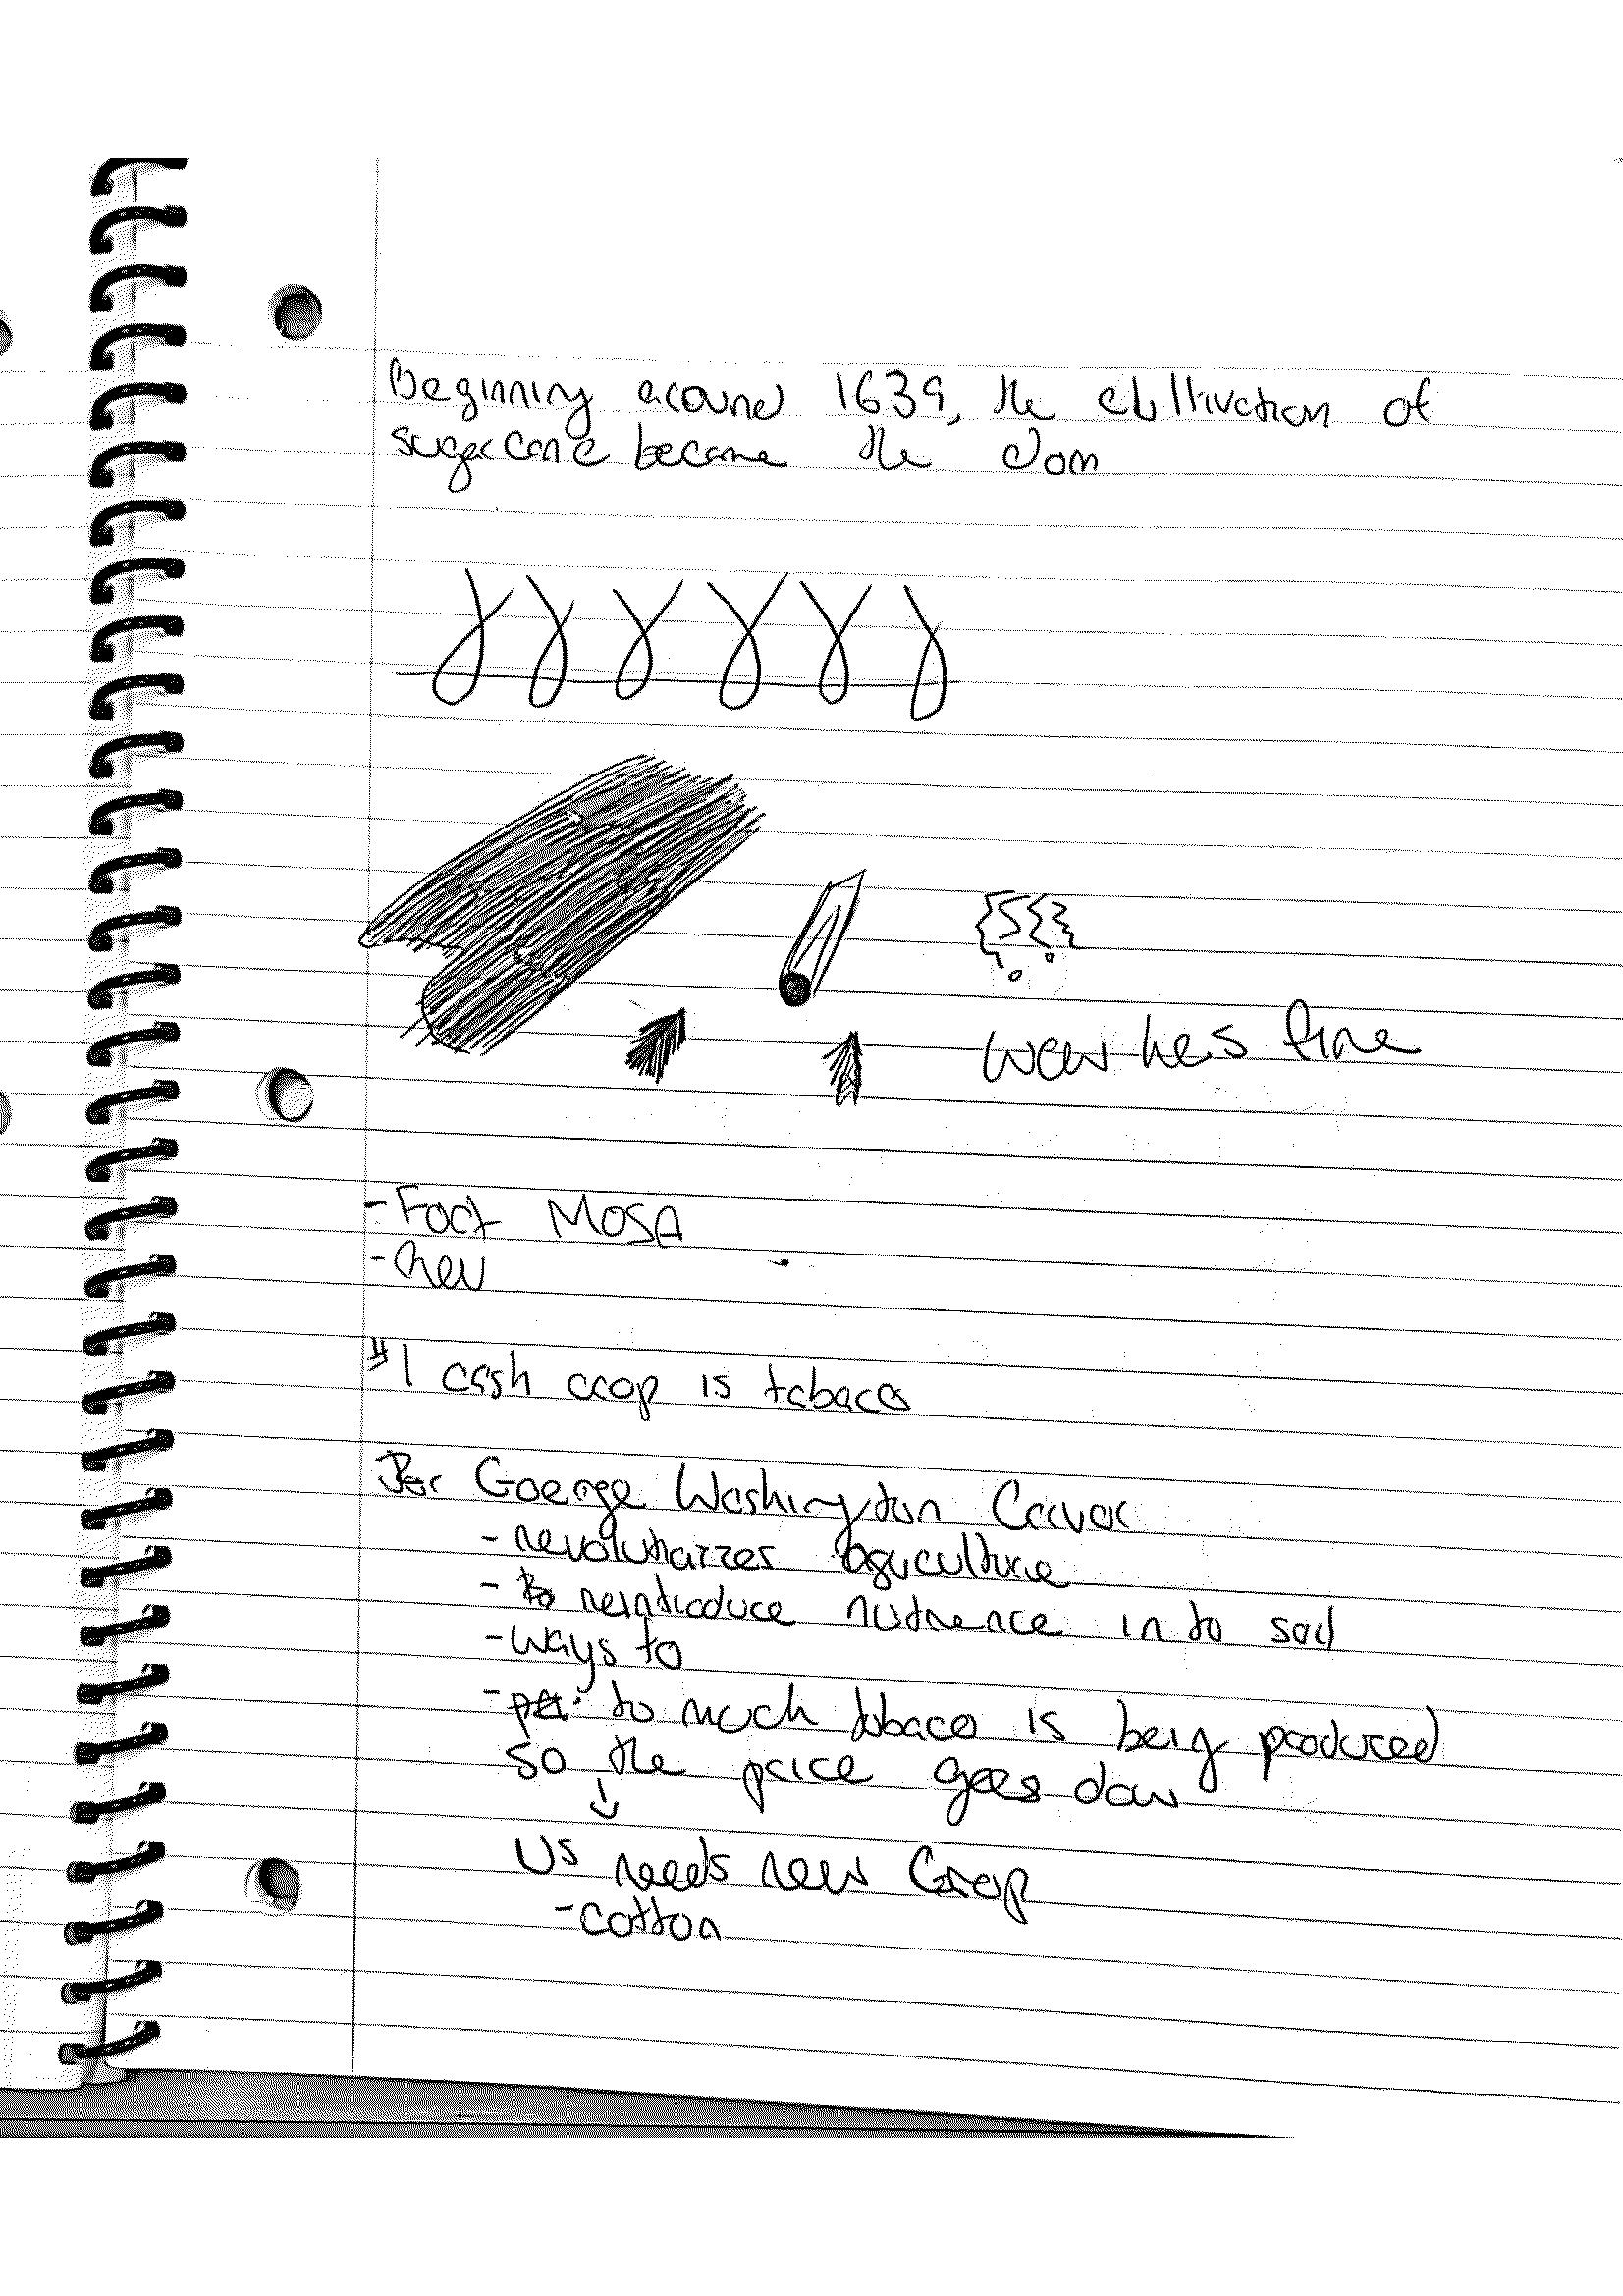 Beginning around 1639, the cultivation of
sugar cane became the dom
wow he's fine
- Fact MOSA
- Rev
#1 cash crop is tabaco
Goerge Washington Carver
- revolutiarizes agriculture
- to reintroduce nutrience in to soil
- ways to
- to much tobaco is being produced
so the price goes down
↓
US needs new Crop
- cotton